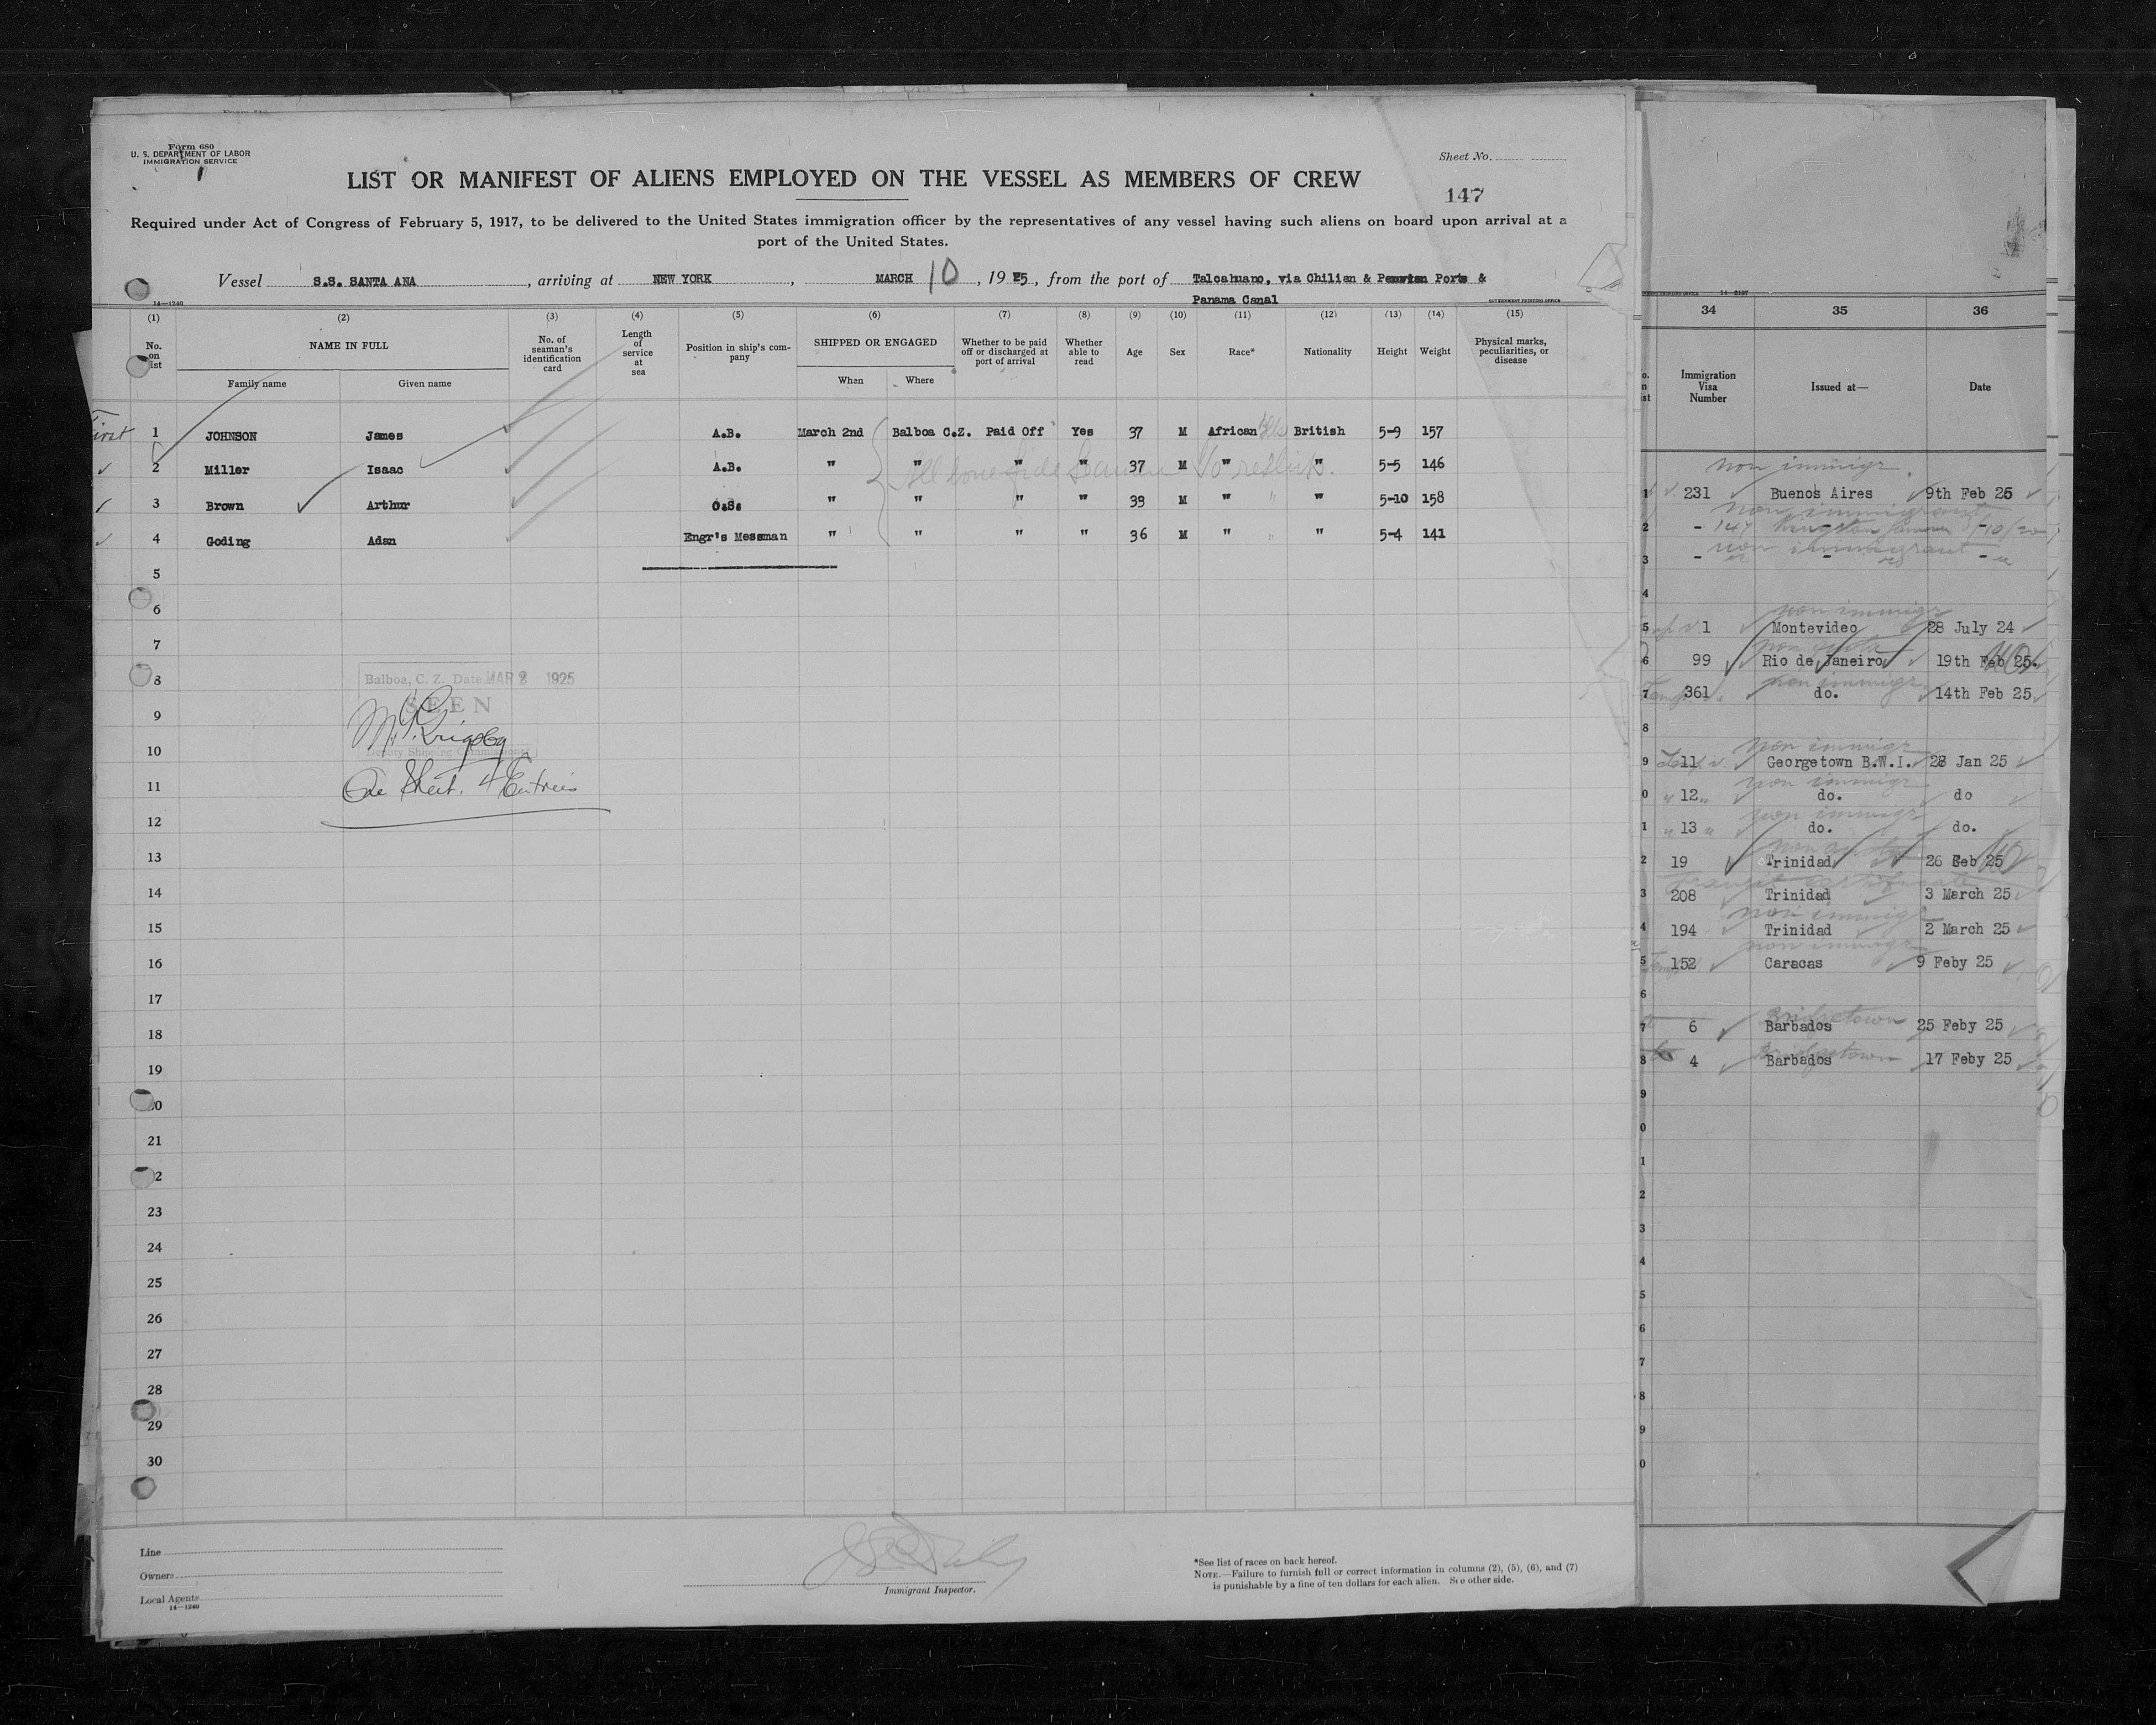 Form 680
U. S. DEPARTMENT OF LABOR
IMMIGRATION SERVICE
Sheet No.
LIST OR MANIFEST OF ALIENS EMPLOYED ON THE VESSEL AS MEMBERS OF CREW
147
Required under Act of Congress of February 5, 1917, to be delivered to the United States immigration officer by the representatives of any vessel having such aliens on board upon arrival at a
port of the United States.
Vessel S.S. SANTA ANA, arriving at NEW YORK, MARCH 10, 1925, from the port of Talcahuano, via Chilian & Peruvian Ports &
Panama Canal
14—1240 GOVERNMENT PRINTING OFFICE
(1) (2) (3) (4) (5) (6) (7) (8) (9) (10) (11) (12) (13) (14) (15)
No. on list
NAME IN FULL
Family name Given name
No. of seaman's identification card
Length of service at sea
Position in ship's company
SHIPPED OR ENGAGED
When Where
Whether to be paid off or discharged at port of arrival
Whether able to read
Age
Sex
Race*
Nationality
Height
Weight
Physical marks, peculiarities, or disease
First 1 JOHNSON James A.B. March 2nd Balboa C.Z. Paid Off Yes 37 M African British 5-9 157
2 Miller Isaac A.B. " " " " 37 M " " 5-5 146
All bona fide Seamen
3 Brown Arthur O.S. " " " " 33 M " " 5-10 158
4 Goding Adan Engr's Messman " " " " 36 M " " 5-4 141
5
6
7
8
9
10
11
12
13
14
15
16
17
18
19
20
21
22
23
24
25
26
27
28
29
30
Balboa, C. Z. Date MAR 2 1925
SEEN
Deputy Shipping Commissioner
One Sheet. 4 Entries
Line
Owners
Local Agents
14—1240
Immigrant Inspector.
*See list of races on back hereof.
NOTE.—Failure to furnish full or correct information in columns (2), (5), (6), and (7)
is punishable by a fine of ten dollars for each alien. See other side.
14—2107
34 35 36
Immigration Visa Number
Issued at—
Date
non immigr.
1 231 Buenos Aires 9th Feb 25
non immigrant
2 - 147 Kingston Jamaica
non immigrant
3 - - -
4
non immigr
5 1 Montevideo 28 July 24
non quota
6 99 Rio de Janeiro 19th Feb 25.
non immigr
7 361 do. 14th Feb 25
8
non immigr
9 11 Georgetown B.W.I. 28 Jan 25
non immigr
0 " 12 " do. do
non immigr
1 " 13 " do. do.
2 19 Trinidad 26 Feb 25
3 208 Trinidad 3 March 25
non immigr
4 194 Trinidad 2 March 25
non immigr
5 152 Caracas 9 Feby 25
6
Bridgetown
7 6 Barbados 25 Feby 25
Bridgetown
8 4 Barbados 17 Feby 25
9
0
1
2
3
4
5
6
7
8
9
0